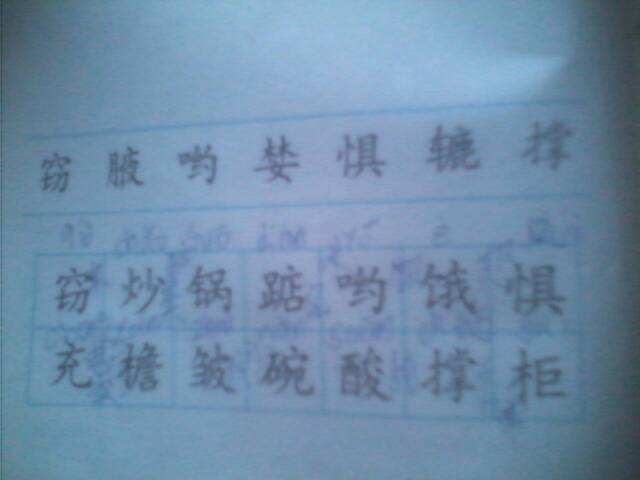 窃腋哟婪惧辘撑
窃炒锅踮哟饿惧
充檐皱碗酸撑柜